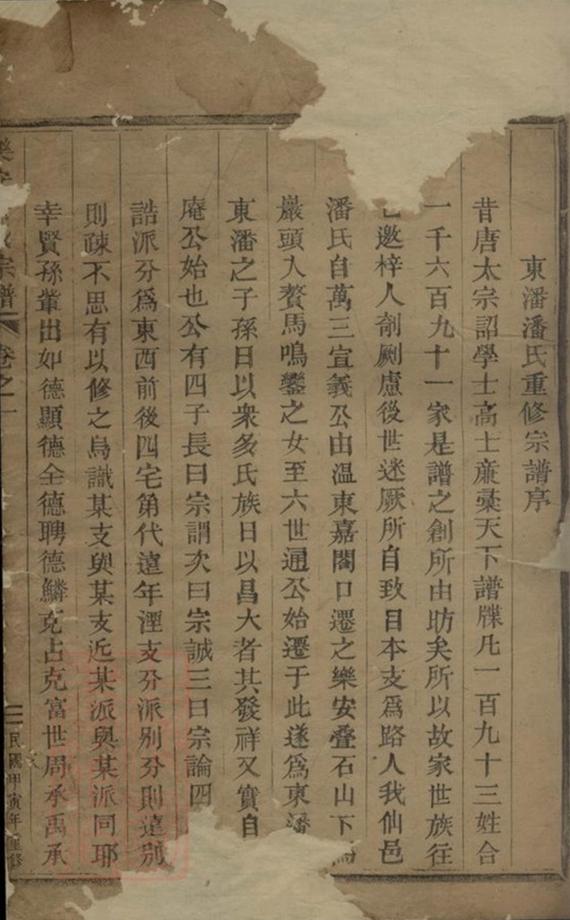 東潘潘氏重修宗譜序
昔唐太宗詔學士高士廉彚天下譜牒凡一百九十三姓合
一千六百九十一家是譜之創所由昉矣所以故家世族往
邀梓人剞劂慮後世迷厥所自致目本支爲路人我仙邑
潘氏自萬三宣義公由温東嘉閣口遷之樂安疊石山下
巖頭入贅馬鳴鑾之女至六世通公始遷于此遂爲東潘
東潘之子孫日以衆多氏族日以昌大者其發祥又實自
庵公始也公有四子長曰宗謂次曰宗誠三曰宗論四
誥派分爲東西前後四宅第代遠年湮支分派別分則遠別
則疎不思有以修之烏識某支與某支近某派與某派同耶
幸賢孫輩出如德顯德全德聘德鱗克占克富世周承禹承
宗譜 卷之一
民國甲寅年重修